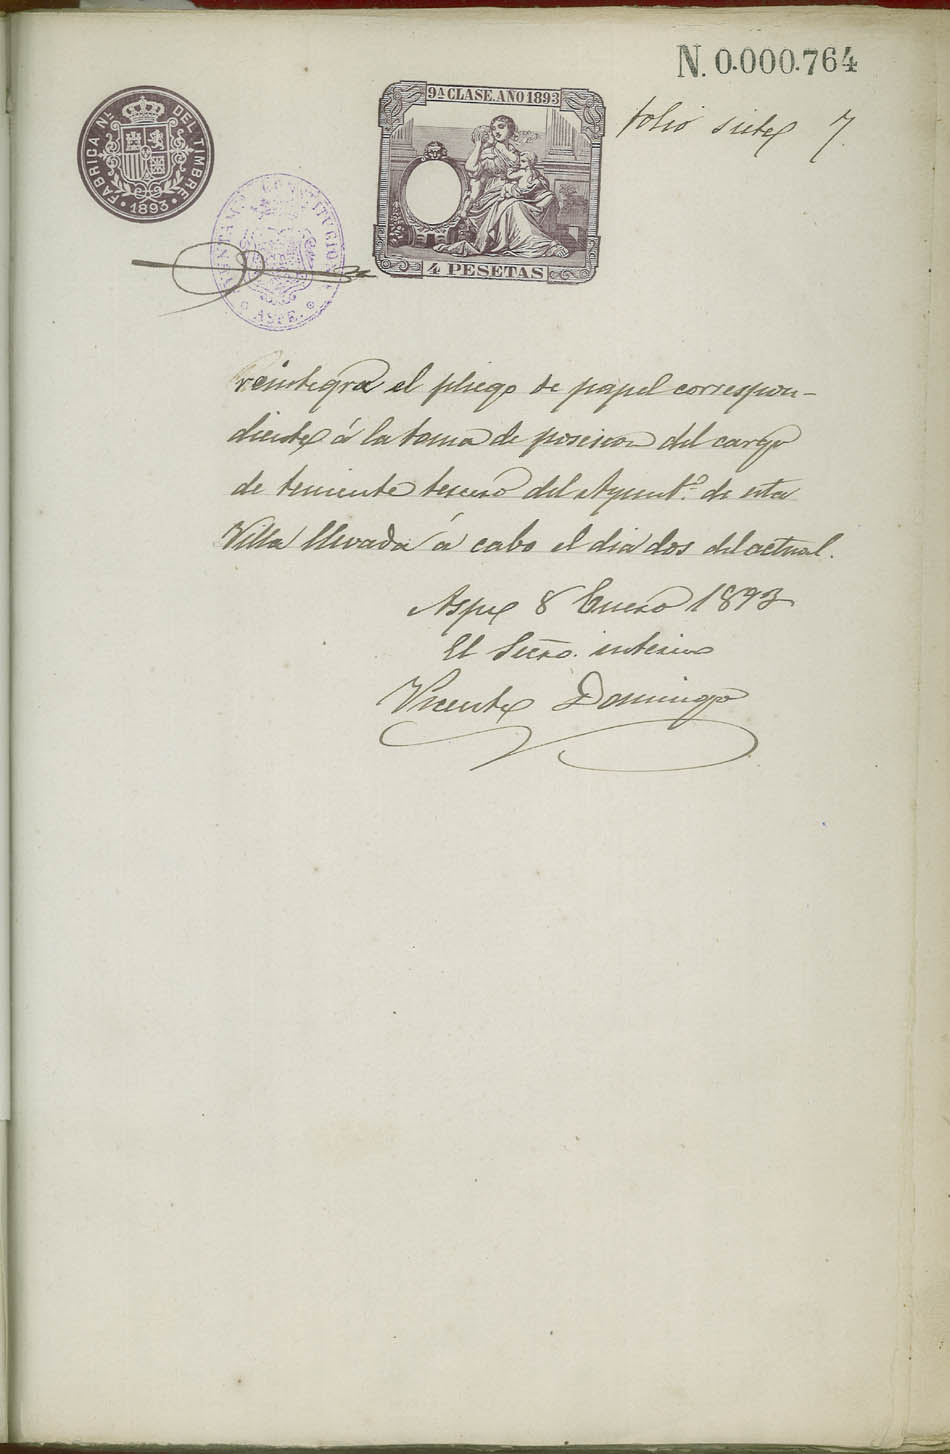 N. 0.000.764
folio siete 7.
FABRICA NL. DEL TIMBRE
1893
9A CLASE. AÑO 1893
4 PESETAS
AYUNTAMTO CONSTITUCIONAL
ASPE.
Reintegra el pliego de papel correspon-
diente á la toma de posesion del cargo
de teniente tercero del Ayuntº. de esta
Villa llevada á cabo el dia dos del actual.
Aspe 8 Enero 1893
El Secro. interino
Vicente Domingo